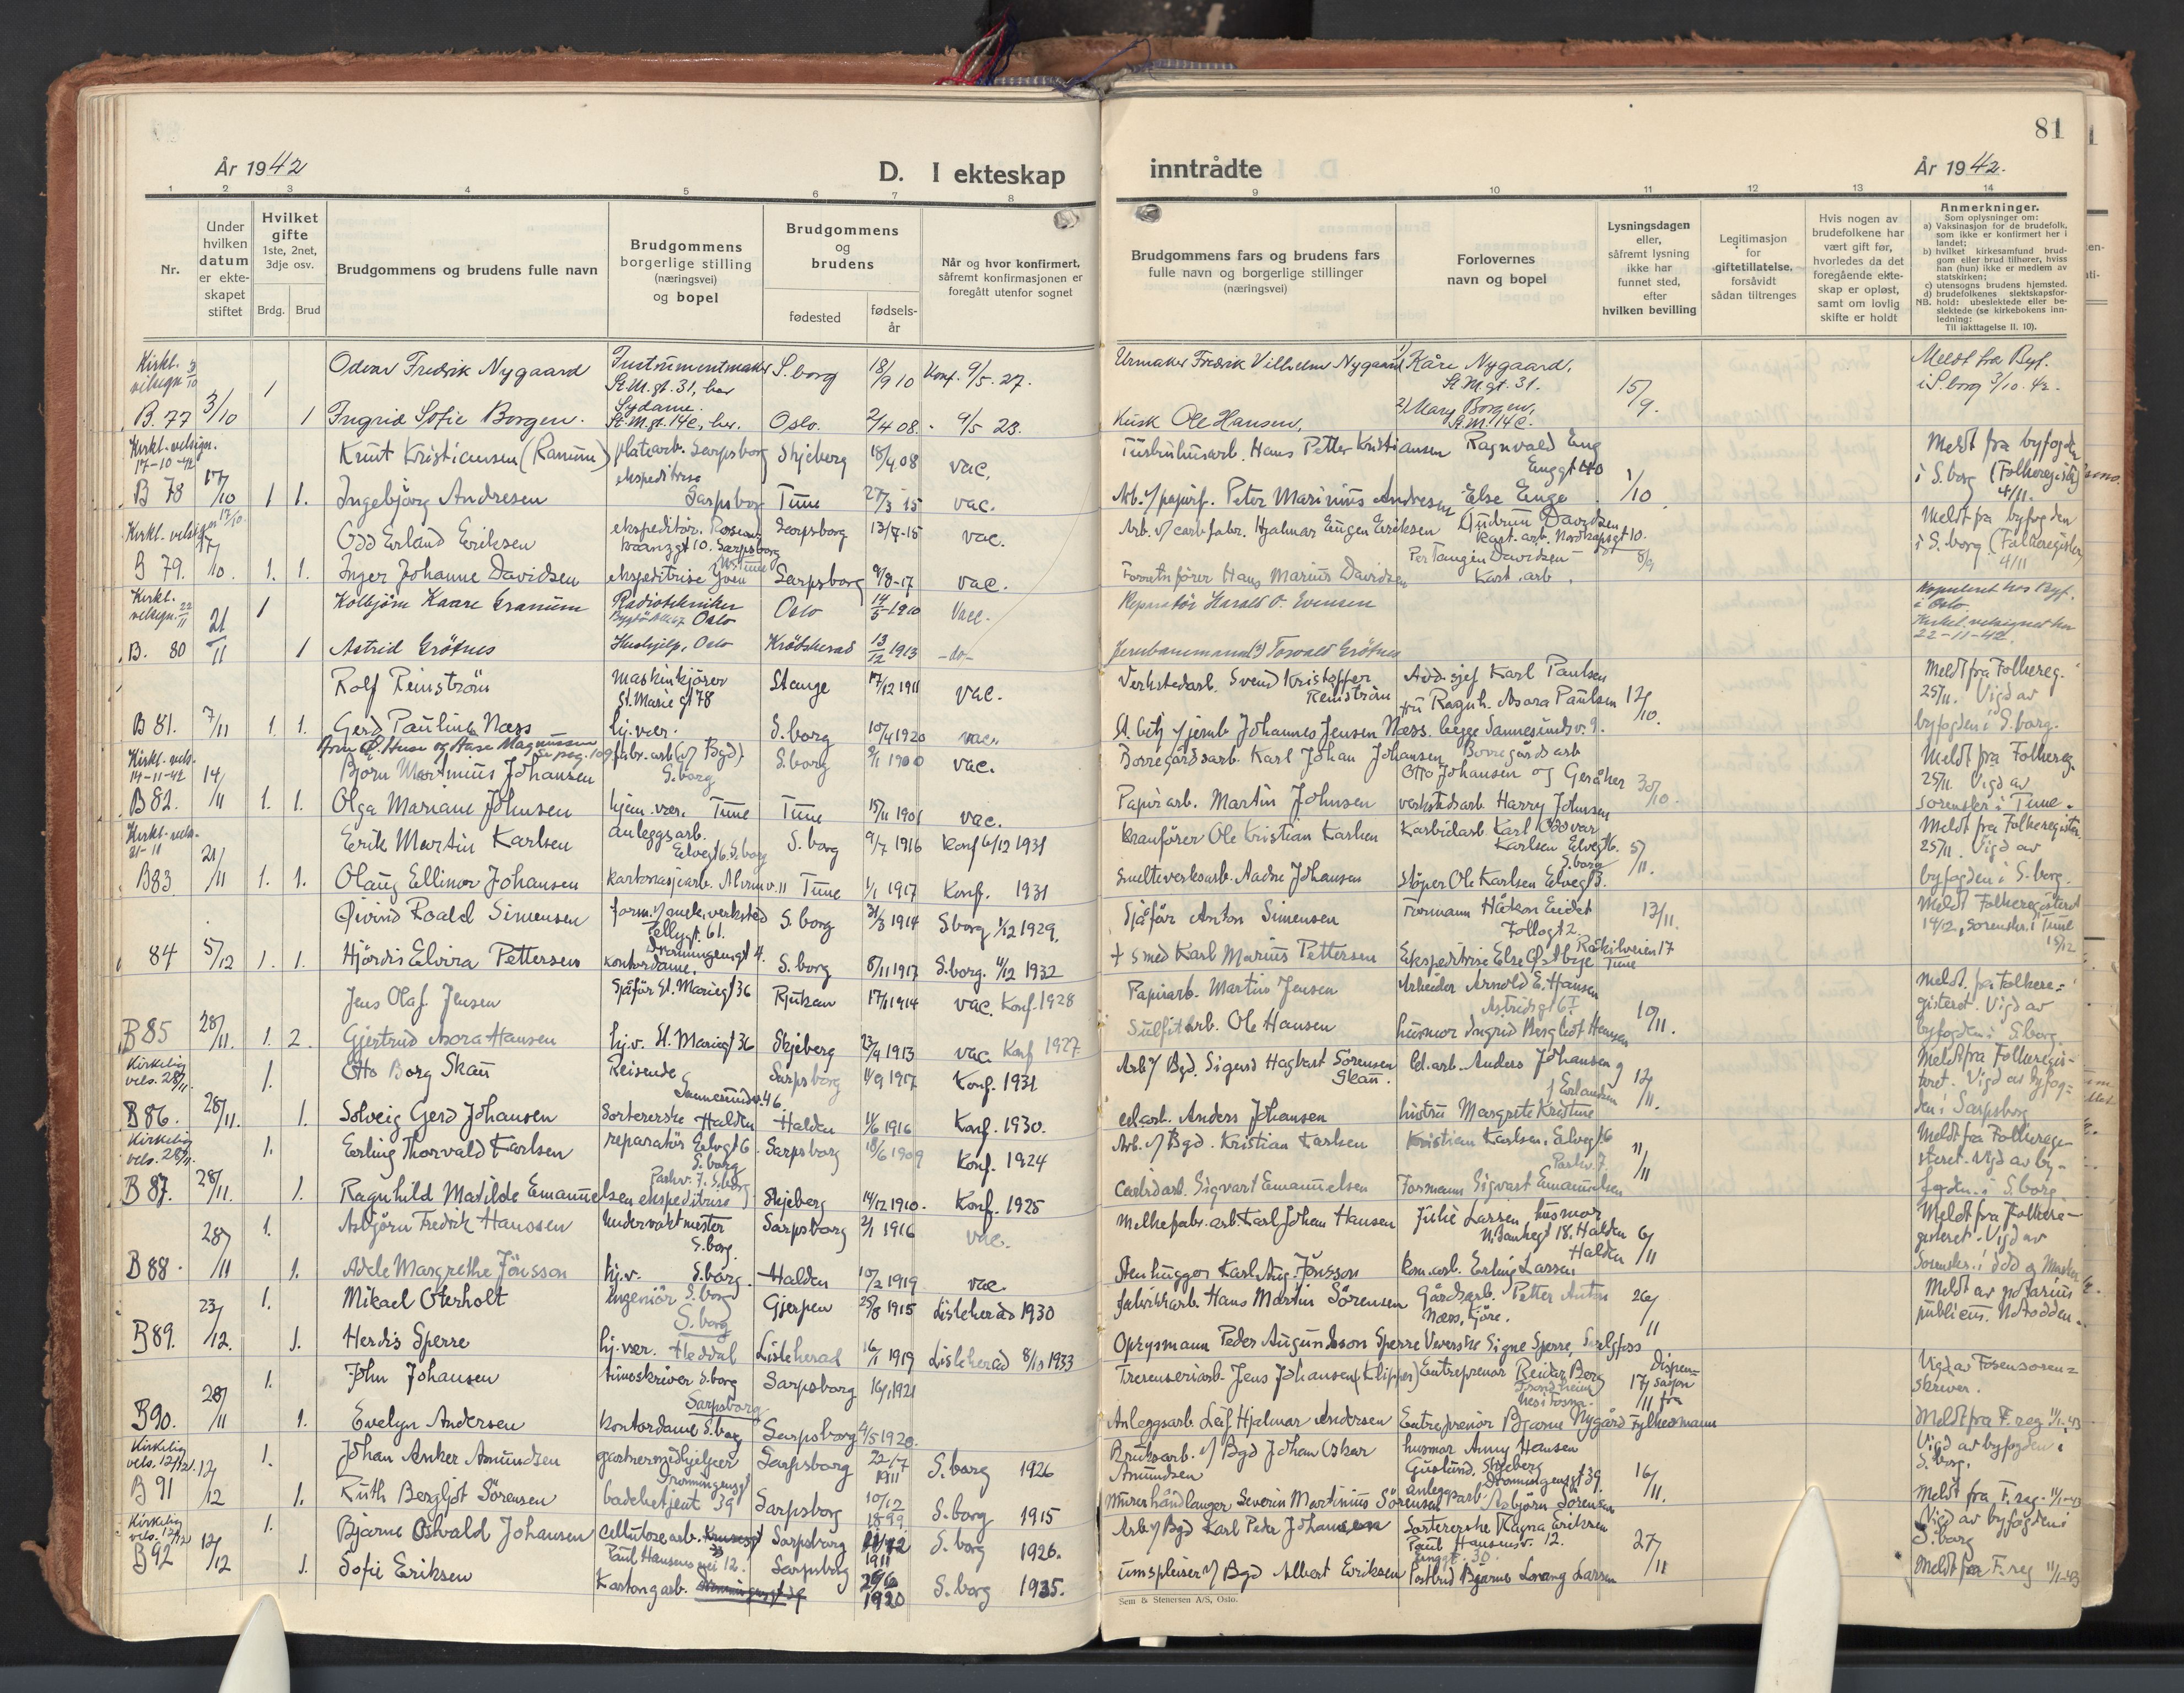 81
År 1942
D. I ekteskap
inntrådte
År 1942.
1 2 3 4 5 6 7 8 9 10 11 12 13 14
Nr.
Under
hvilken
datum
er ekte-
skapet
stiftet
Hvilket
gifte
1ste, 2net,
3dje osv.
Brdg. Brud
Brudgommens og brudens fulle navn
Brudgommens
borgerlige stilling
(næringsvei)
og bopel
Brudgommens
og
brudens
fødested
fødsels-
år
Når og hvor konfirmert,
såfremt konfirmasjonen er
foregått utenfor sognet
Brudgommens fars og brudens fars
fulle navn og borgerlige stillinger
(næringsvei)
Forlovernes
navn og bopel
Lysningsdagen
eller,
såfremt lysning
ikke har
funnet sted,
efter
hvilken bevilling
Legitimasjon
for
giftetillatelse,
forsåvidt
sådan tiltrenges
Hvis nogen av
brudefolkene har
vært gift før,
hvorledes da det
foregående ekte-
skap er opløst,
samt om lovlig
skifte er holdt
Anmerkninger.
Som oplysninger om:
a) Vaksinasjon for de brudefolk,
som ikke er konfirmert her i
landet;
b) hvilket kirkesamfund brud-
gom eller brud tilhører, hviss
han (hun) ikke er medlem av
statskirken;
c) utensogns brudens hjemsted.
d) brudefolkenes slektskapsfor-
NB. hold: ubeslektede eller be-
slektede (se kirkebokens inn-
ledning:
Til iakttagelse II. 10).
Kirkl. velsign. 3/10 1 Odvar Fredrik Nygaard Instrumentmaker St.M.gt. 31, her S.borg 18/9 10 Konf. 9/5. 27. Urmaker Fredrik Vilhelm Nygaard 1) Kåre Nygaard, St.M.gt. 31. 15/9. Meldt fra Byf. i S.borg 3/10. 42.
B. 77 3/10 1 Ingrid Sofie Borgen. Sydame. St.M.gt. 14c, her. Oslo. 2/4 08. 9/5 23. Kusk Ole Hansen, 2) Mary Borgen, St.M. 14c.
Kirkl. velsign. 17-10-42 Knut Kristiansen (Ranum) platearb. Sarpsborg Skjeberg 18/4 08 vac. Hans Petter Kristiansen Ragnvald Eng Enggt 40 1/10 Meldt fra byfogden
B 78 17/10 1 1. Ingebjörg Andresen ekspeditrise Sarpsborg Tune 27/3 15 vac. Arb. v/ papirf. Peter Marinius Andresen Else Enge i S.borg (Folkeregister) 4/11.
Kirkl. velsign 17/10. Odd Erland Eriksen ekspeditör. Sarpsborg Sarpsborg 13/4-15 vac. Arb. v/ carb.fabr. Hjalmar Eugen Eriksen Gudrun Davidsen kart. arb. Nordkapsgt 10. 8/9 Meldt fra byfogden
B 79. 17/10. 1. 1. Inger Johanne Davidsen ekspeditrise Sarpsborg 9/8-17 vac. Forretnfører Hans Marius Davidsen Per Tangen Davidsen Kart. arb. i S.borg (Folkeregister) 4/11
Kirkl. velsign. 22/11 1 Kolbjörn Kaare Granum Radiotekniker Oslo Oslo 14/5-1910 Vacc. Reparatör Harald O. Evensen Kopulert hos Byf. i Oslo.
B. 80 21/11 1 Astrid Grötnes Hushjelp, Oslo Krödsherad 13/12 1913 -do- Jernbanemann Torvald Grötnes Kirkel. velsignet her 22-11-42
Rolf Reinström Maskinkjörer St. Marie gt 78 Stange 17/12 1911 vac. Verkstedarb. Svend Kristoffer Reinström Avd.sjef Karl Paulsen 12/10. Meldt fra Folkereg. 25/11. Vigd av
B 81. 7/11 1. 1. Gerd Pauline Næss hj. vær. S.borg 10/4 1920 vac. Johannes Jensen Næss. fru Ragnh. Asora Paulsen begge Sannesundsv. 9. byfogden i S.borg.
Kirkl. vels. 14-11-42 Björn Martinius Johansen fabr. arb. (v/ Bgd) S.borg S.borg 9/1 1900 vac. Borregårdsarb. Karl Johan Johansen Borregårdsarb Otto Johansen 30/10. Meldt fra Folkereg. 25/11. Vigd av
B 82. 14/11 1. 1. Olga Mariane Johnsen hjem. vær. Tune Tune 15/11 1901 vac. Papirarb. Martin Johnsen verkstedsarb Harry Johnsen sorenskr. i Tune.
Kirkl. vels. 21-11 Erik Martin Karlsen anleggsarb. Elvegt 6. S.borg S.borg 9/7 1916 Konf 6/12 1931 Kranförer Ole Kristian Karlsen Karbidarb. Karl Oddvar Karlsen Elvegt 6. S.borg 5/11. Meldt fra Folkeregister. 25/11. Vigd av
B83 21/11 1. 1. Olaug Ellinor Johansen kartonasjearb. Alvimv. 11 Tune 1/1 1917 Konf. 1931 Smelteverksarb. Aadne Johansen Stöper Ole Karlsen Elvegt 3. byfogden i S.borg.
Øivind Roald Simensen form. v/ mek. verksted S.borg 31/3 1914 S.borg 1/12 1929. Sjåför Anton Simensen Formann Håkon Eidet Follogt 2 13/11. Meldt Folkeregisteret
84 5/12 1. 1. Hjördis Elvira Pettersen Dronningensgt 4. kontordame, S.borg 8/11 1917 S.borg. 4/12 1932 + smed Karl Marius Pettersen Ekspeditrise Else Østbye Råkilveien 17 Tune 14/12, Sorenskr. i Tune 15/12
Jens Olaf Jensen Sjåför St. Mariegt 36 Rjukan 17/1 1914 vac. Konf. 1928 Papirarb. Martin Jensen Arbeider Arnold E. Hansen 10/11. Meldt. fra Folkere-
B85 28/11. 1. 2. Gjertrud Asora Hansen hj.v. St. Mariegt 36 Skjeberg 23/4 1913 vac. Konf 1927 Sulfitarb. Ole Hansen husmor Ingrid Bergliot Hansen gisteret. Vigd av byfogden i S.borg.
Kirkelig vels. 28/11. 1. Otto Borg Skau Reisende Sannesundsv. 46. Sarpsborg 4/9 1917 Konf. 1931 Arb v/ Bgd. Sigurd Hagbart Sörensen Skau. El.arb. Anders Johansen 12/11. Meldt fra Folkeregis-
B86. 28/11. 1. Solveig Gerd Johansen Sortererske Halden Halden 14/6 1916 Konf. 1930. el.arb. Anders Johansen hustru Margrete Kristine teret. Vigd av byfog- den i Sarpsborg
Kirkelig vels. 28/11. 1. Erling Thorvald Karlsen reparatör Elvegt 6 S.borg Sarpsborg 18/6 1909 Konf. 1924 Arb. v/ Bgd. Kristian Karlsen Kristian Karlsen, Elvegt 6 11/11 Meldt fra Folkerege-
B 87. 28/11. 1. Ragnhild Matilde Emanuelsen ekspeditrise Parkv. 7. S.borg Skjeberg 14/12 1910. Konf. 1925 Carbidarb. Sigvart Emanuelsen Formann Sigvart Emanuelsen Parkv. 7. steret. Vigd av by- fogden i S.borg
28/11 1. Asbjörn Fredrik Hanssen Undervaktmester S.borg Sarpsborg 2/1 1916 vac. Melkefabr.arb. Karl Johan Hansen Julie Larsen husmor Halden 6/11 Meldt fra Folkere-
B 88. 1. Adele Margrethe Jönsson hj.v. S.borg. Halden 10/2 1919 vac. Stenhugger Karl Aug. Jönsson kom.arb. Erling Larsen Halden gisteret. Vigd av Sorenskr. i Idd og Marker
23/12. 1. Mikael Oterholt Ingeniör S.borg S.borg Gjerpen 25/8 1915 Lisleherad 1930 fabrikkarb. Hans Martin Sörensen Gårdsarb. Petter Anton Næss, 26/11 Meldt av notarius
B89. 1. Herdis Sperre hj. vær. Heddal Lisleherad 16/1 1919 Lisleherad 8/10 1933 Opsynsmann Peder Augundsson Sperre Veverske Signe Sperre, publicus. Notodden.
28/11 1. John Johansen timeskriver S.borg Sarpsborg Sarpsborg 16/1 1921 Jens Johansen (Klipper) Entreprenör Reidar Berg Trondheim 17/11 Dispen- sasjon fra Vigd av Fosen soren- skriver.
B90. 1. Evelyn Andersen Kontordame S.borg Sarpsborg 4/5 1920. Anleggsarb. Leif Hjalmar Andersen Entreprenör Bjarne Nygård Fylkesmann Meldt fra F.reg 11/1-43
Kirkelig vels. 12/12. 1. Johan Anker Amundsen gartnermedhjelper Sarpsborg 22/7 1911 S.borg 1926 Bruksarb. v/ Bgd Johan Oskar Amundsen husmor Anny Hansen Skjeberg 16/11. Vigd av byfogden i S.borg.
B 91 12/12 1. Ruth Bergljot Sörensen badebetjent Dronningensgt 39 Sarpsborg 10/12 1899 S.borg 1915 Murerhåndlanger Severin Martinius Sörensen anleggsarb. Asbjörn Sörensen Dronningensgt 39. Meldt fra F.reg. 11/1-43
Kirkelig vels. 12/12 1. Bjarne Osvald Johansen Cellulosearb. Paul Hansens vei 12. Sarpsborg 1911 S.borg 1926. Arb v/ Bgd Karl Peder Johansen Sortererske Ragna Eriksen Paul Hansensv. 12. 27/11 Vigd av byfogden i S.borg
B 92 12/12 1. Sofie Eriksen Kartongarb. Sarpsborg 29/6 1920 S.borg 1935. v/ Bgd Albert Eriksen Postbud Bjarne Larsen Meldt fra F.reg 11/1-43
Sem & Stenersen A/S, Oslo.